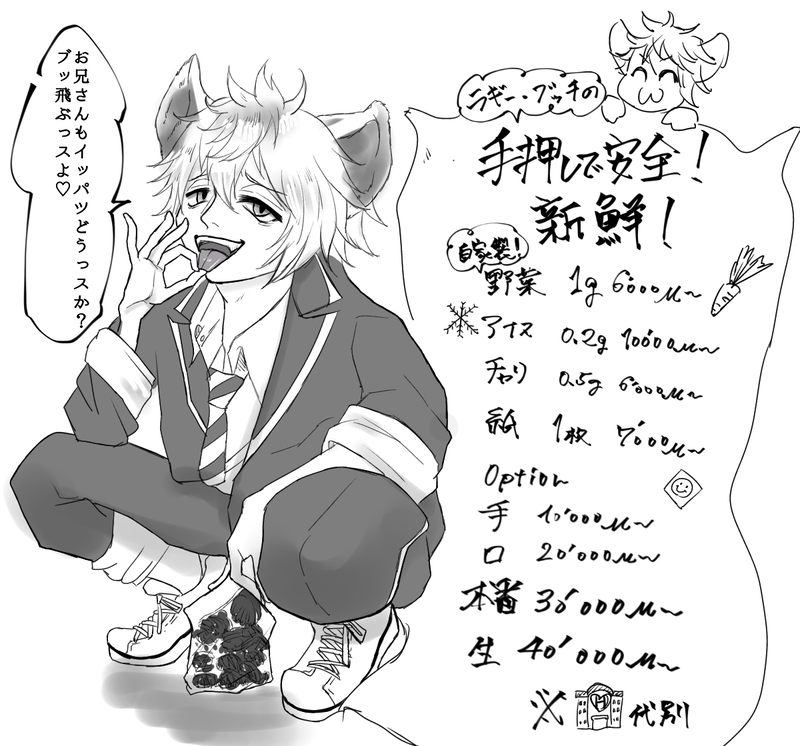 お兄さんもイッパツどうっスか?
ブッ飛ぶっスよ♡
ラギー・ブッチの
手押しで安全!
新鮮!
自家製!
野菜 1g 6'000μ〜
アイス 0.2g 10'000μ〜
チャリ 0.5g 6'000μ〜
紙 1枚 7'000μ〜
Option
手 10'000μ〜
口 20'000μ〜
本番 30'000μ〜
生 40'000μ〜
※ H 代別